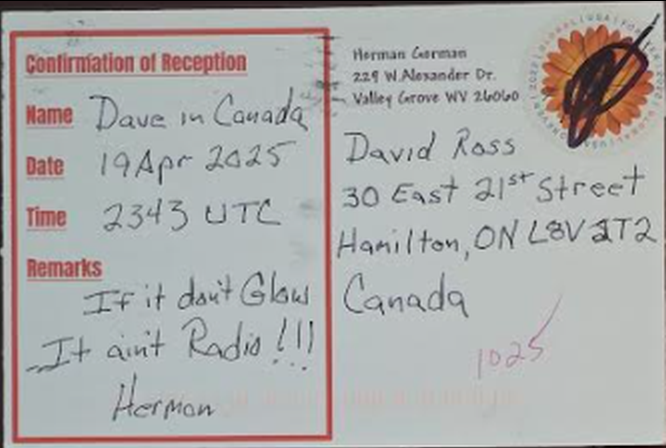 Confirmation of Reception
Name Dave in Canada
Date 19 Apr 2025
Time 2343 UTC
Remarks
If it don't Glow
It ain't Radio!!!
Herman
Herman Gorman
229 W. Alexander Dr.
Valley Grove WV 26060
David Ross
30 East 21st Street
Hamilton, ON L8V 2T2
Canada
1025